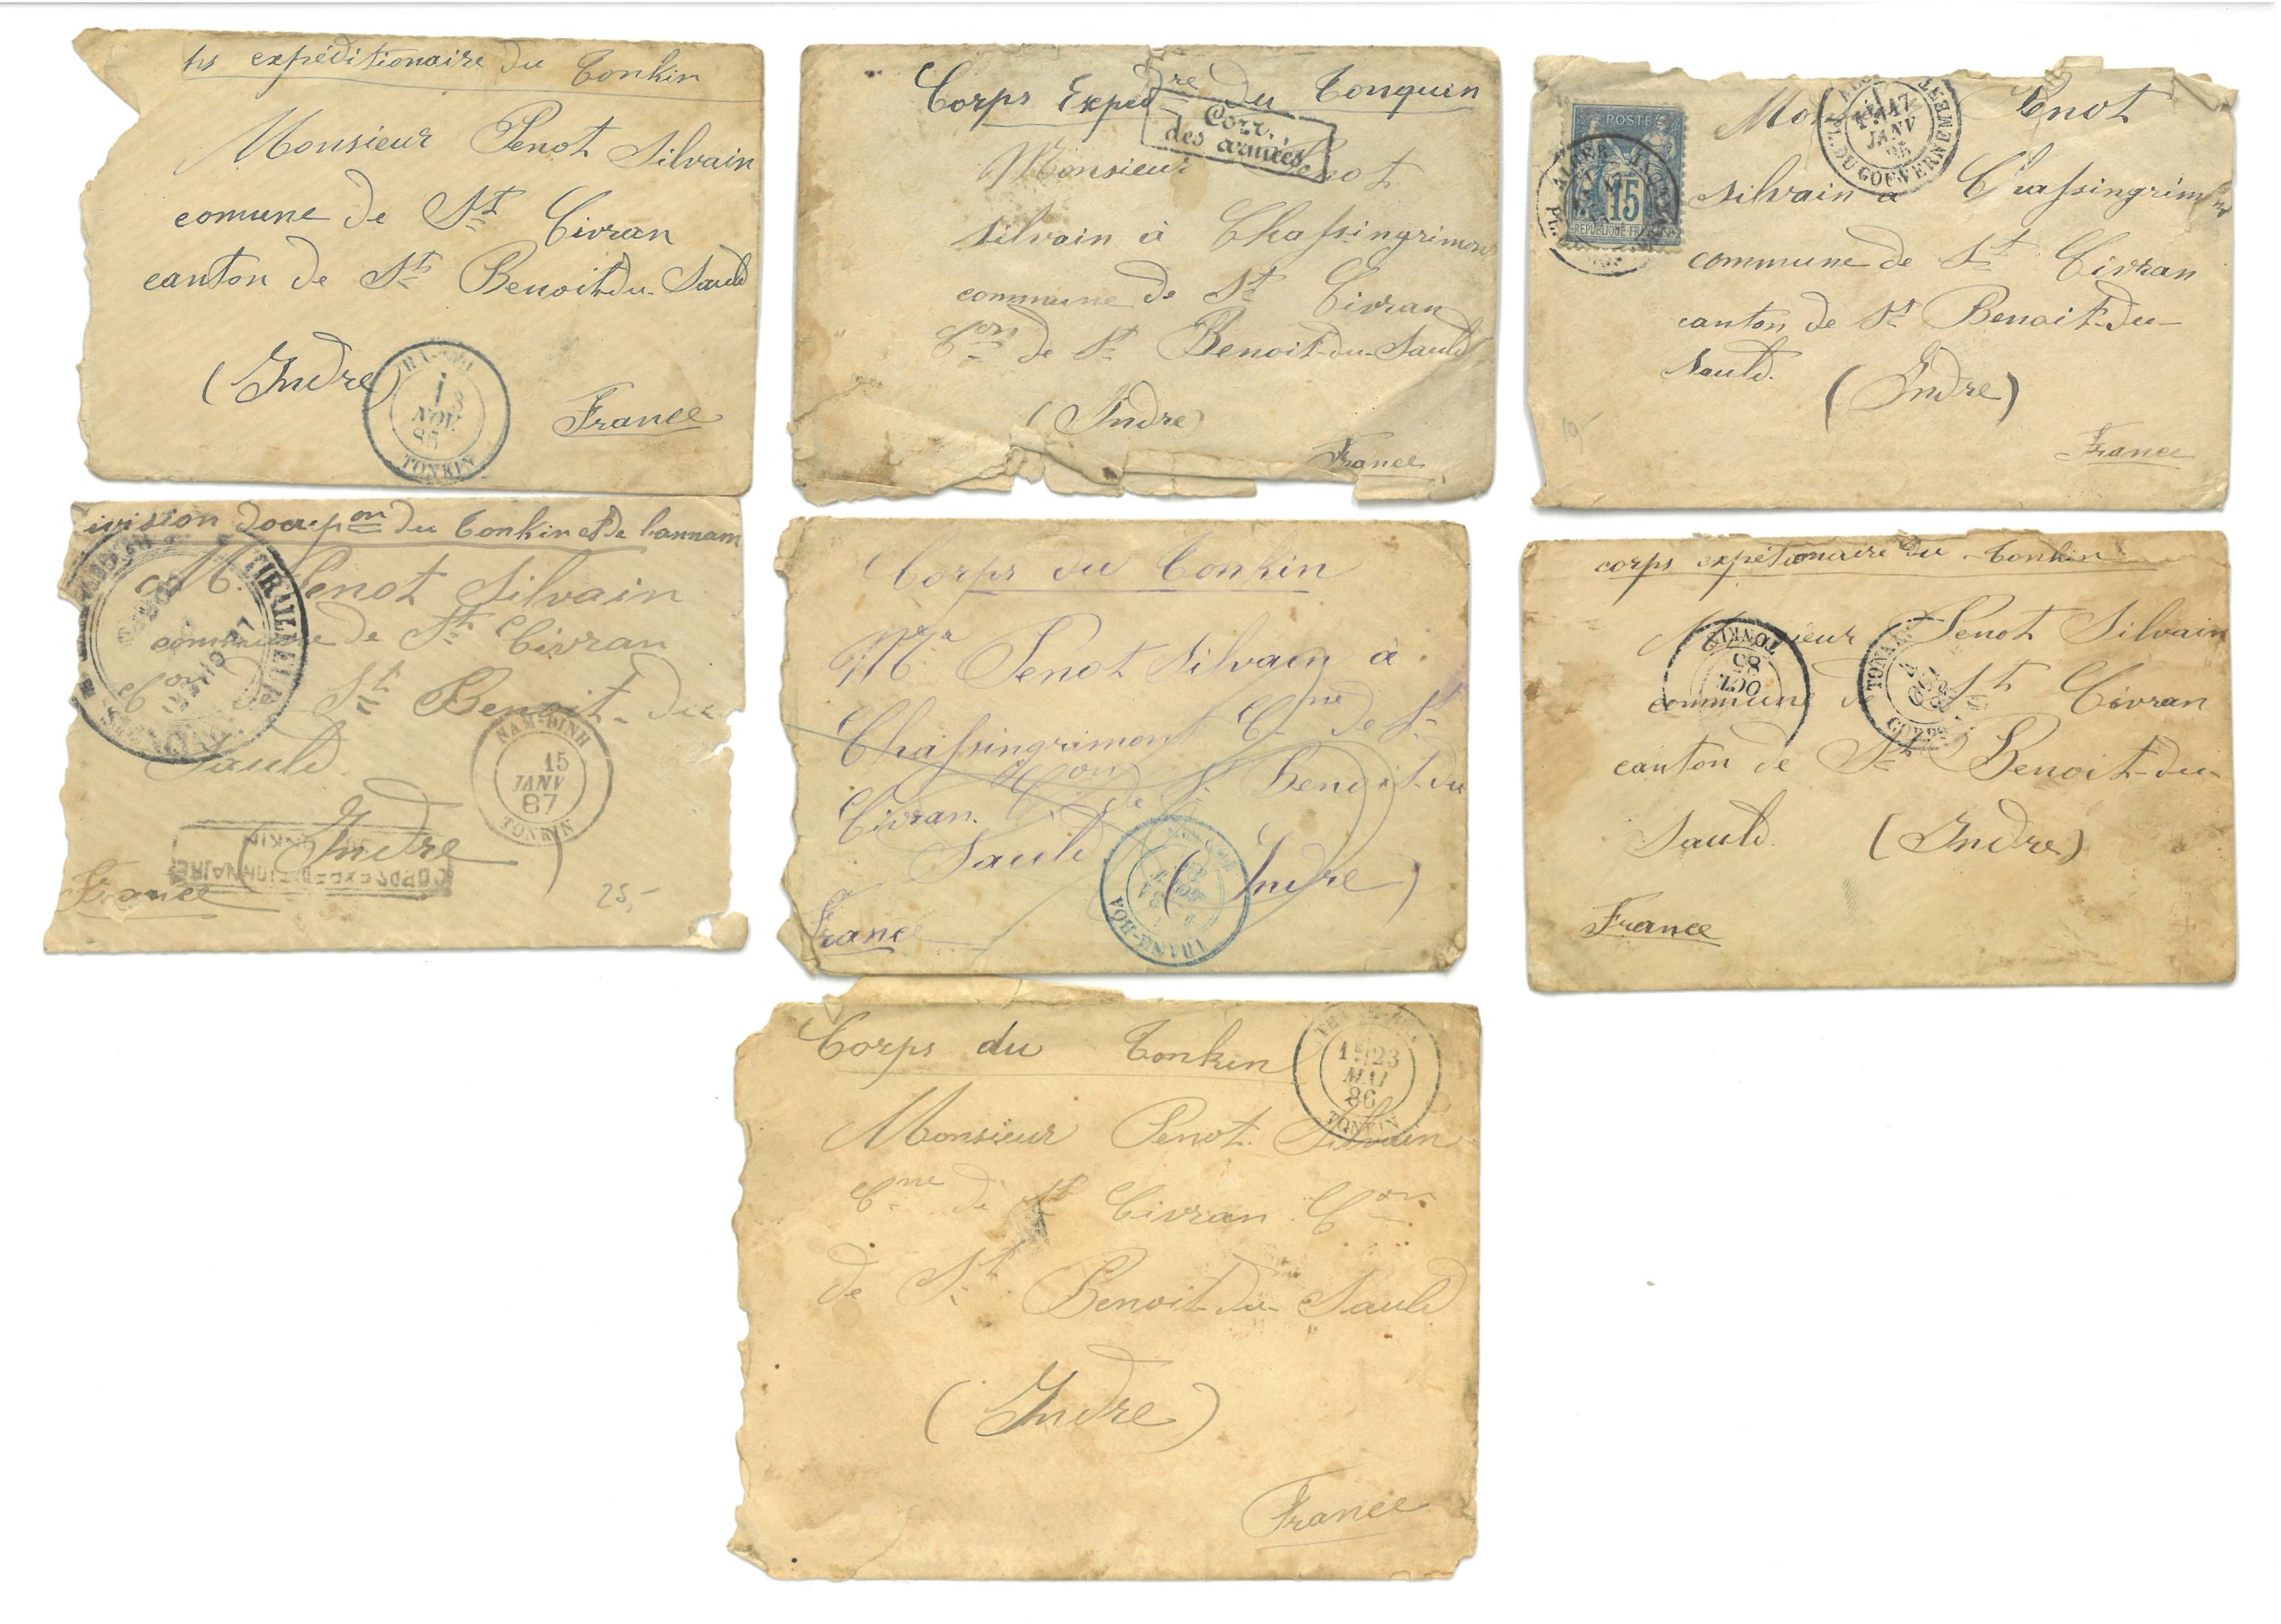 hs expéditionaire du Tonkin
Monsieur Penot Silvain
comune de St Civran
canton de St Benoit-du-Sauld
(Indre)
HA-NOI
1 3
NOV.
85
TONKIN
France
Corps Expedre du Tonquin
Corr.
des armées
Monsieur Penot
Silvain à Chassingrimont
commune de St Civran
Con de St Benoit-du-Sauld
(Indre)
France
POSTES
15
REPUBLIQUE FRANÇAISE
ALGER
17
JANV
PL. DU GOUVERNEMENT
Penot
Silvain à Chassingrimont
commune de St Civran
canton de St Benoit-du-
Sauld.
(Indre)
10,-
France
ivision docupon du Tonkin et de lannam
TIRAILLEURS
M. Penot Silvain
commune de St Civran
Con de St Benoit-du
Sauld
NAM-DINH
15
JANV
87
TONKIN
(Indre)
CORPS EXPEDITIONNAIRE
TONKIN
France
25,-
Corps du Tonkin
Mr Penot Silvain à
Chassingrimont Cne de St
Civran. Con de St Benoit-du
Sauld (Indre)
THANH-HOA
France
corps expétionaire du Tonkin
Monsieur Penot Silvain
TONKIN
85
OCT
commune de St Civran
TONKIN
canton de St Benoit-du-
Sauld. (Indre)
France
Corps du Tonkin
1 23
MAI
86
TONKIN
Monsieur Penot Silvain
Cne de St Civran Con
de St Benoit-du-Sauld
(Indre)
France